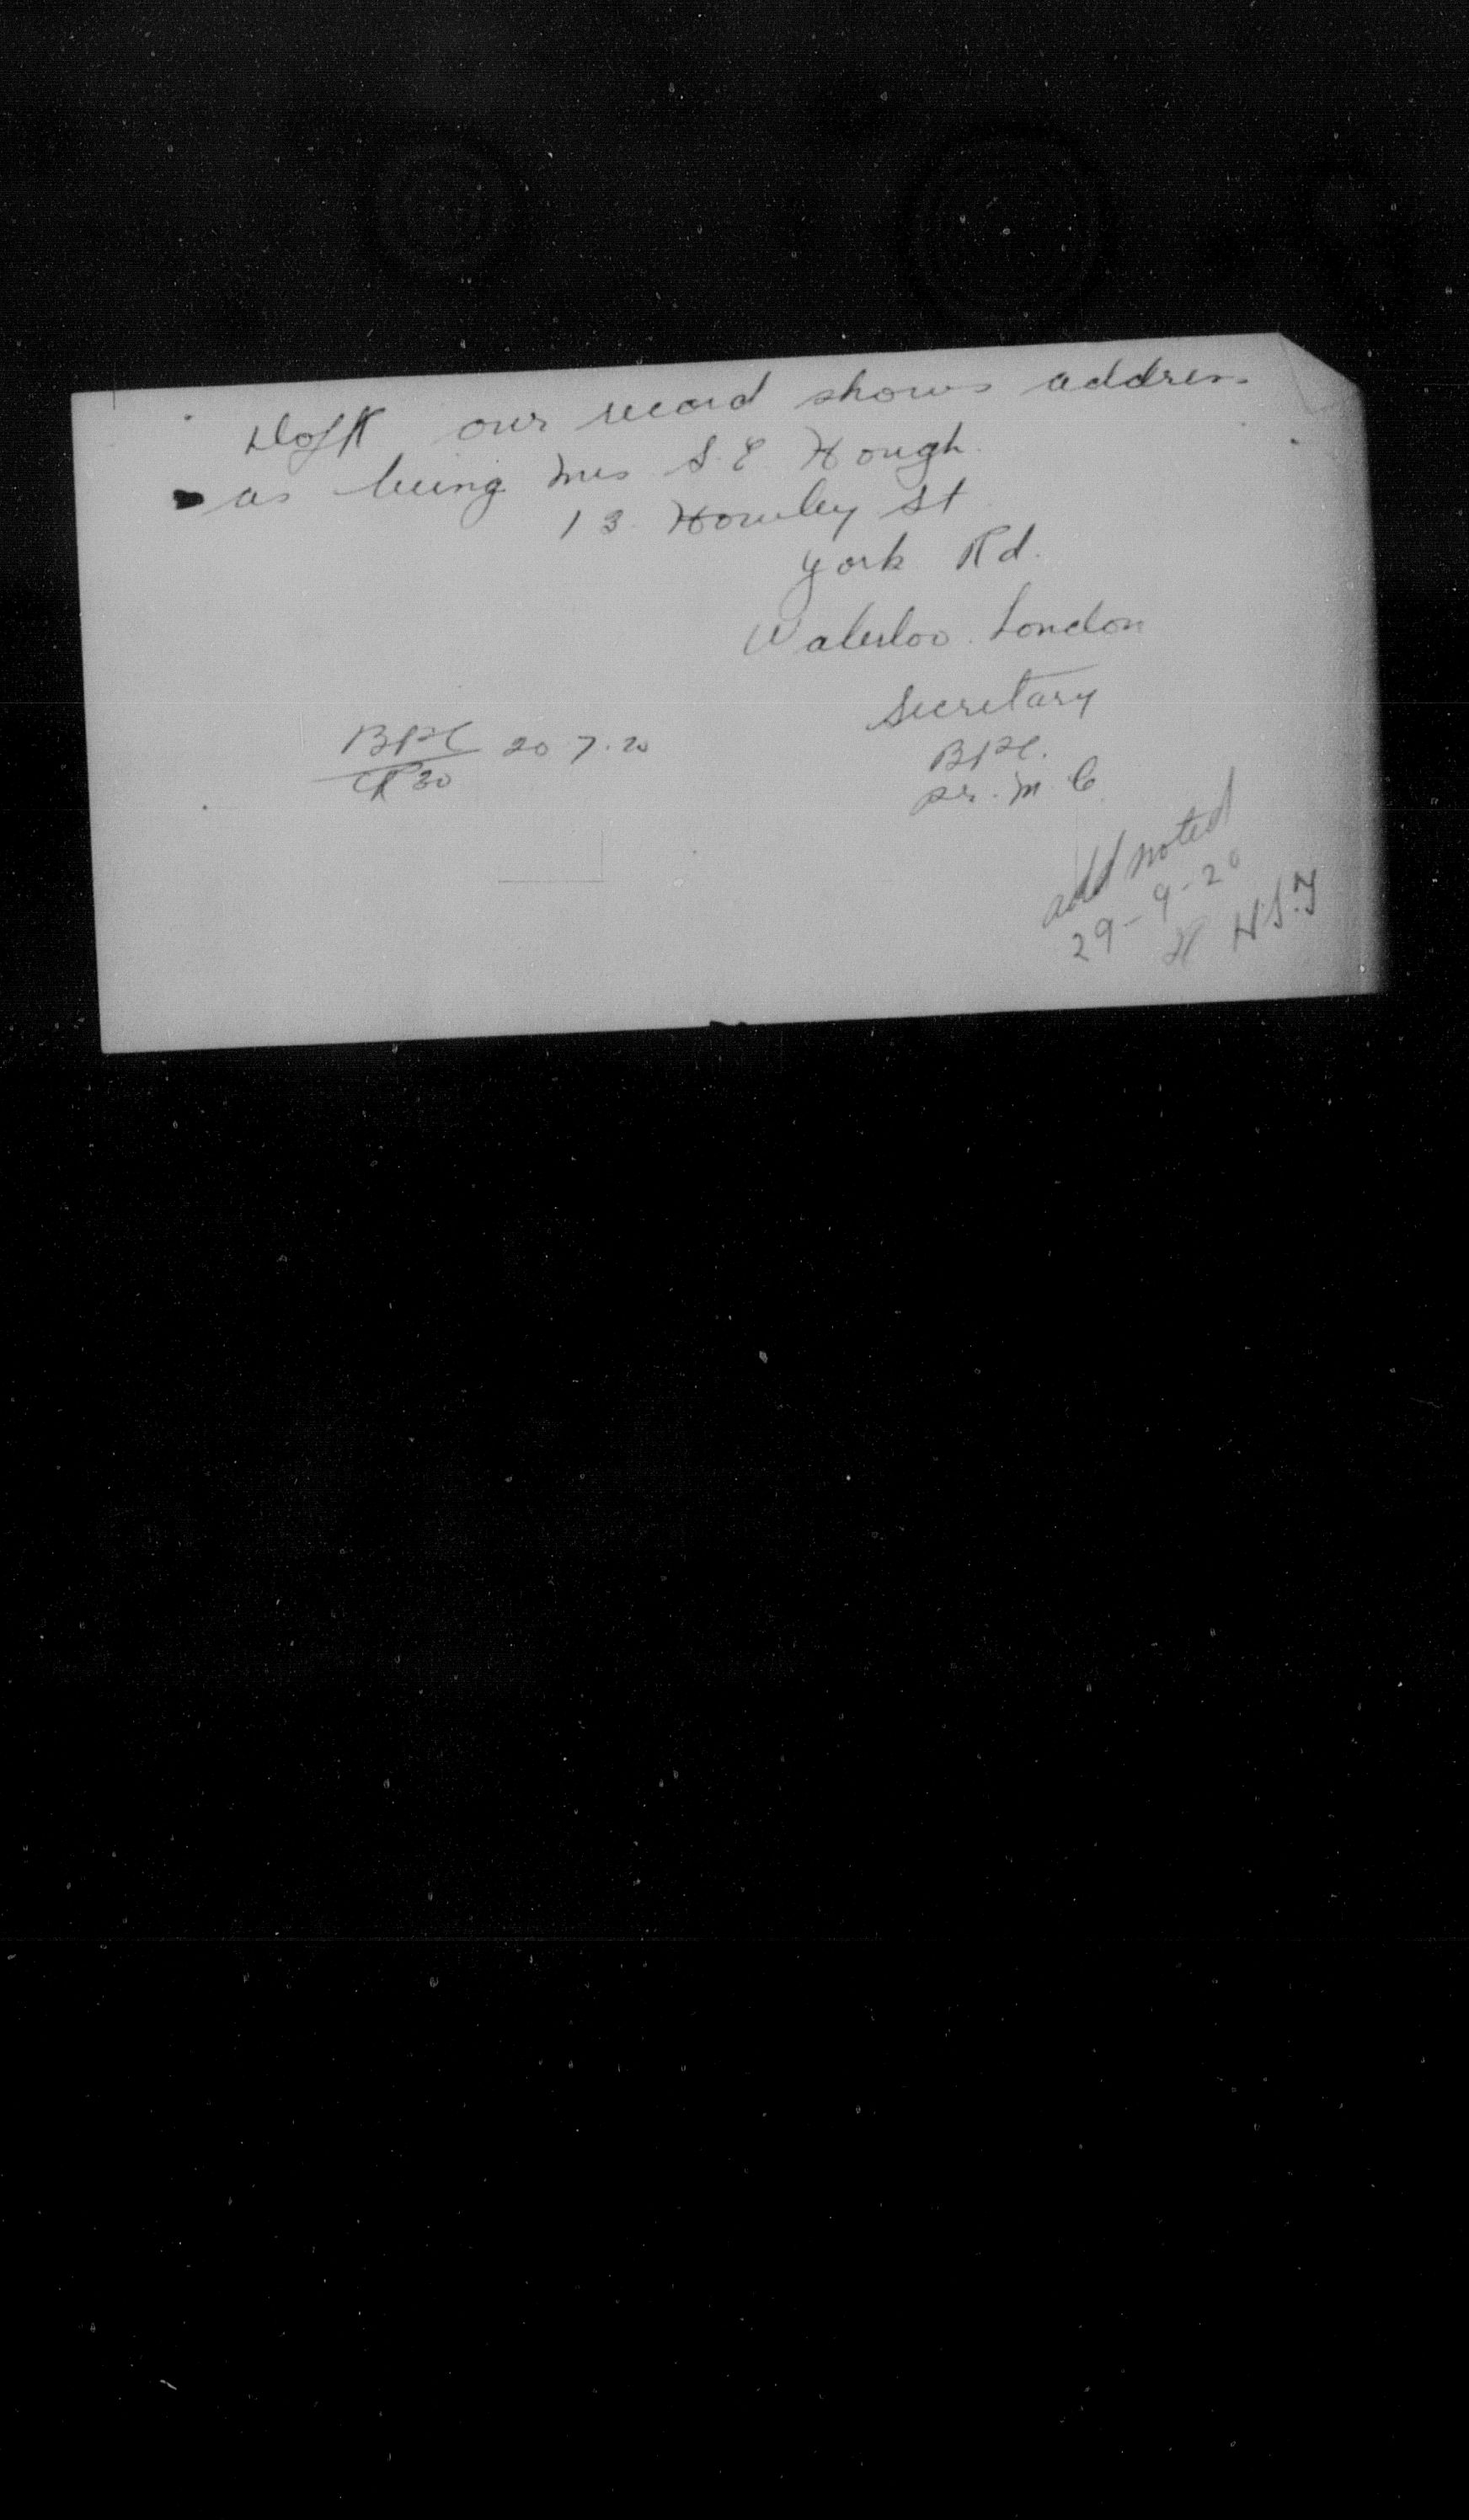 D of R our record shows address
as being Mrs S. E. Hough
13. Howley St
York Rd.
Waterloo. London
Secretary
BPC 20 7. 20
BPC.
R 30
per. M. C
add noted
29-9-20
H. S. T